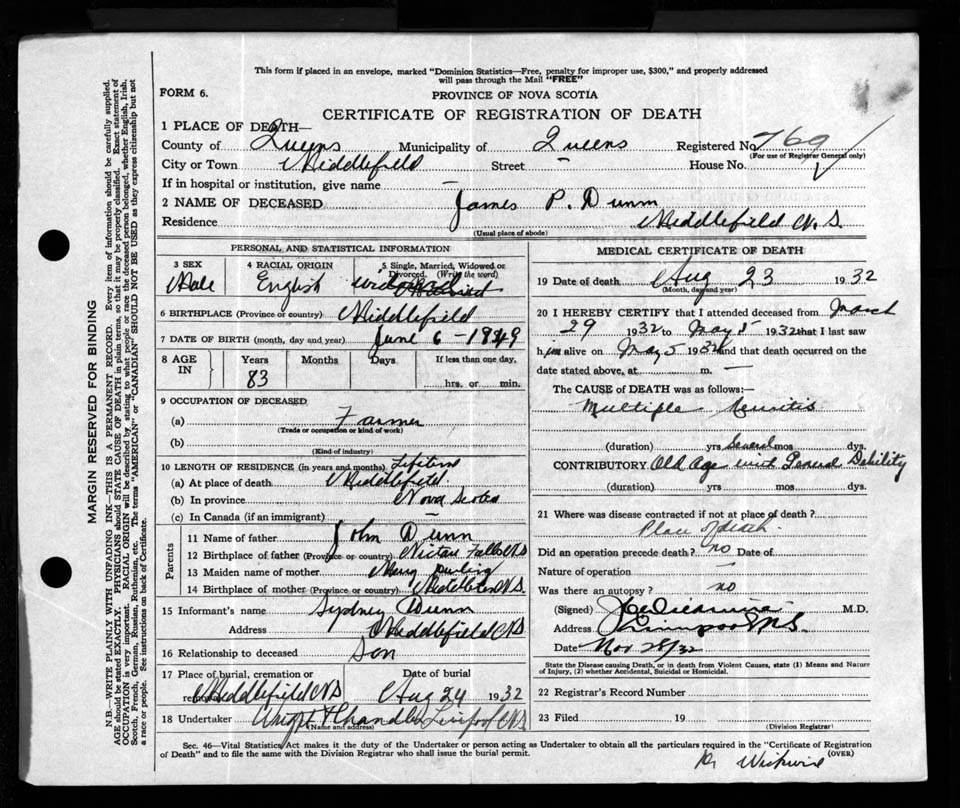 This form if placed in an envelope, marked "Dominion Statistics—Free, penalty for improper use, $300," and properly addressed
will pass through the Mail "FREE"
FORM 6.
PROVINCE OF NOVA SCOTIA
CERTIFICATE OF REGISTRATION OF DEATH
1 PLACE OF DEATH—
County of Queens Municipality of Queens Registered No. 769
(For use of Registrar General only)
City or Town Middlefield Street — House No.
If in hospital or institution, give name —
2 NAME OF DECEASED James P. Dunn
Residence Middlefield N.S.
(Usual place of abode)
PERSONAL AND STATISTICAL INFORMATION
3 SEX 4 RACIAL ORIGIN 5 Single, Married, Widowed or Divorced. (Write the word)
Male English widowed
6 BIRTHPLACE (Province or country) Middlefield
7 DATE OF BIRTH (month, day and year) June 6 - 1849
8 AGE IN Years Months Days If less than one day,
83 hrs. or min.
9 OCCUPATION OF DECEASED
(a) Farmer
(Trade or occupation or kind of work)
(b)
(Kind of industry)
10 LENGTH OF RESIDENCE (in years and months) Lifetime
(a) At place of death Middlefield
(b) In province Nova Scotia
(c) In Canada (if an immigrant) —
Parents
11 Name of father John Dunn
12 Birthplace of father (Province or country) Nictau Falls NS
13 Maiden name of mother Mary
14 Birthplace of mother (Province or country) N.S.
15 Informant's name Sydney Dunn
Address Middlefield NS
16 Relationship to deceased Son
17 Place of burial, cremation or removal Date of burial
Middlefield NS Aug 24 1932
18 Undertaker Wright & Chandler Liverpool NS
(Name and address)
MEDICAL CERTIFICATE OF DEATH
19 Date of death Aug 23 1932
(Month, day and year)
20 I HEREBY CERTIFY that I attended deceased from March
29 1932 to May 5 1932 that I last saw
him alive on May 5 1932 and that death occurred on the
date stated above, at m. —
The CAUSE of DEATH was as follows:—
Multiple Neuritis
(duration) yrs Several mos dys.
CONTRIBUTORY Old Age with General Debility
(duration) yrs. mos. dys.
21 Where was disease contracted if not at place of death?
Place of death.
Did an operation precede death? no Date of
Nature of operation —
Was there an autopsy? no
(Signed) M.D.
Address Liverpool N.S.
Date Nov 28/32
State the Disease causing Death, or in death from Violent Causes, state (1) Means and Nature
of Injury, (2) whether Accidental, Suicidal or Homicidal.
22 Registrar's Record Number
23 Filed 19
(Division Registrar)
Sec. 46—Vital Statistics Act makes it the duty of the Undertaker or person acting as Undertaker to obtain all the particulars required in the "Certificate of Registration
of Death" and to file same with the Division Registrar who shall issue the burial permit.
(OVER)
MARGIN RESERVED FOR BINDING
N.B.—WRITE PLAINLY WITH UNFADING INK—THIS IS A PERMANENT RECORD. Every item of information should be carefully supplied.
AGE should be stated EXACTLY. PHYSICIANS should STATE CAUSE OF DEATH in plain terms, so that it may be properly classified. Exact statement of
OCCUPATION is very important. RACIAL ORIGIN will be described by stating to what people or race the deceased person belonged, whether English, Irish,
Scotch, French, German, Russian, Ruthenian, etc. The terms "AMERICAN" or "CANADIAN SHOULD NOT BE USED as they express citizenship but not
a race or people. See instructions on back of Certificate.